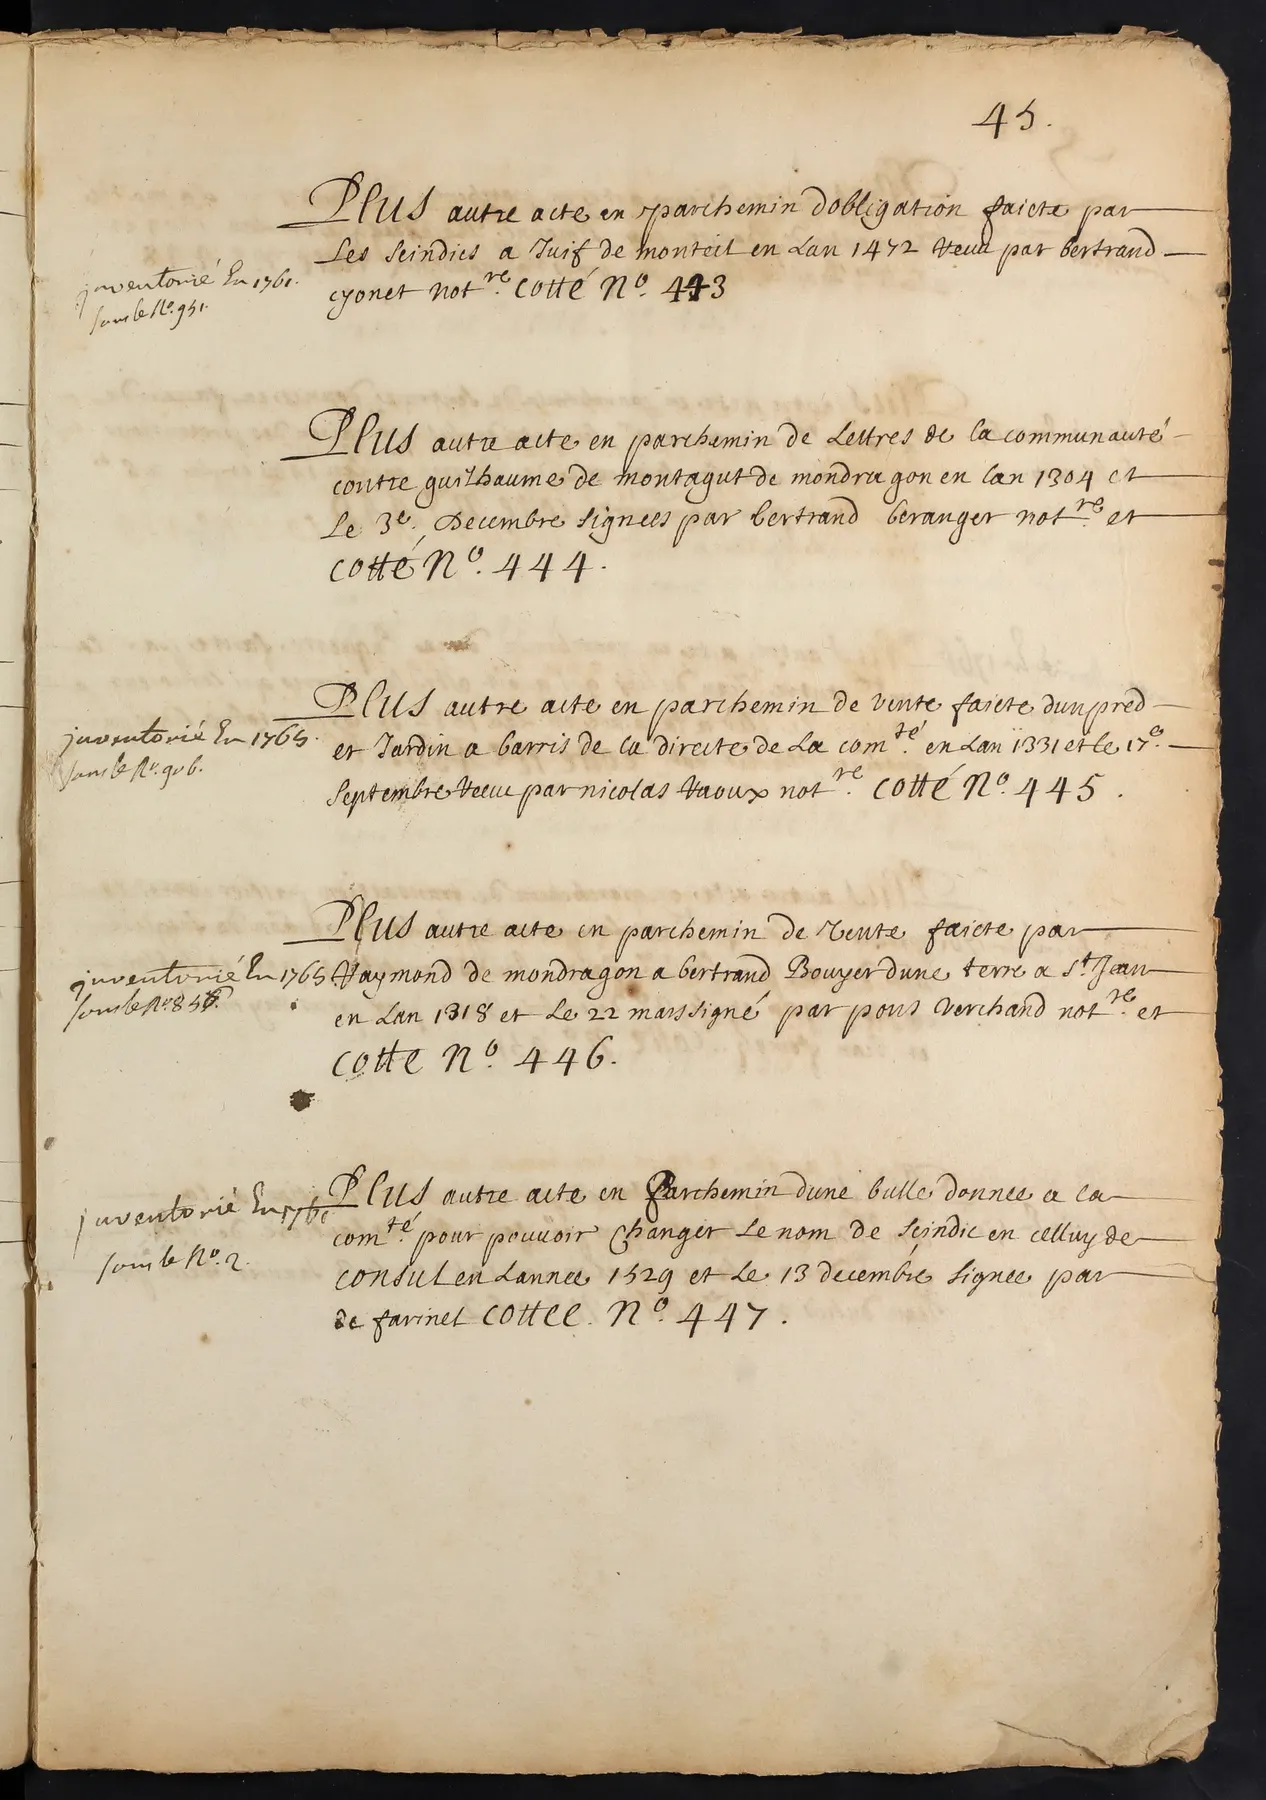 45.
Plus autre acte en parchemin dobligation faicte par
Les scindics a Juif de monteil en Lan 1472 Receu par bertrand
cyonet not.re cotté No. 443
jnventorié En 1761.
sous le No. 951.
Plus autre acte en parchemin de Lettres de la communauté
contre guilhaume de montagut de mondragon en Lan 1304 et
Le 3e. Decembre signees par bertrand beranger not.re et
cotté No. 444.
Plus autre acte en parchemin de vente faicte dun pred
et Jardin a barris de la directe de La com.té en Lan 1331 et le 17e.
Septembre Receu par nicolas Raoux not.re cotté No. 445.
jnventorié En 1765.
sous le No. 906.
Plus autre acte en parchemin de vente faicte par
Raymond de mondragon a bertrand Bouyer dune terre a St. Jean
en Lan 1318 et Le 22 mars signé par pons verchand not.re et
cotte No. 446.
jnventorié En 1765
sous le No. 856.
Plus autre acte en Parchemin dune bulle donnee a la
com.té pour pouvoir Changer Le nom de scindic en celluy de
consul en Lannee 1529 et Le 13 decembre signee par
de farinel cottee. No. 447.
jnventorié En 1761
sous le No. 2.